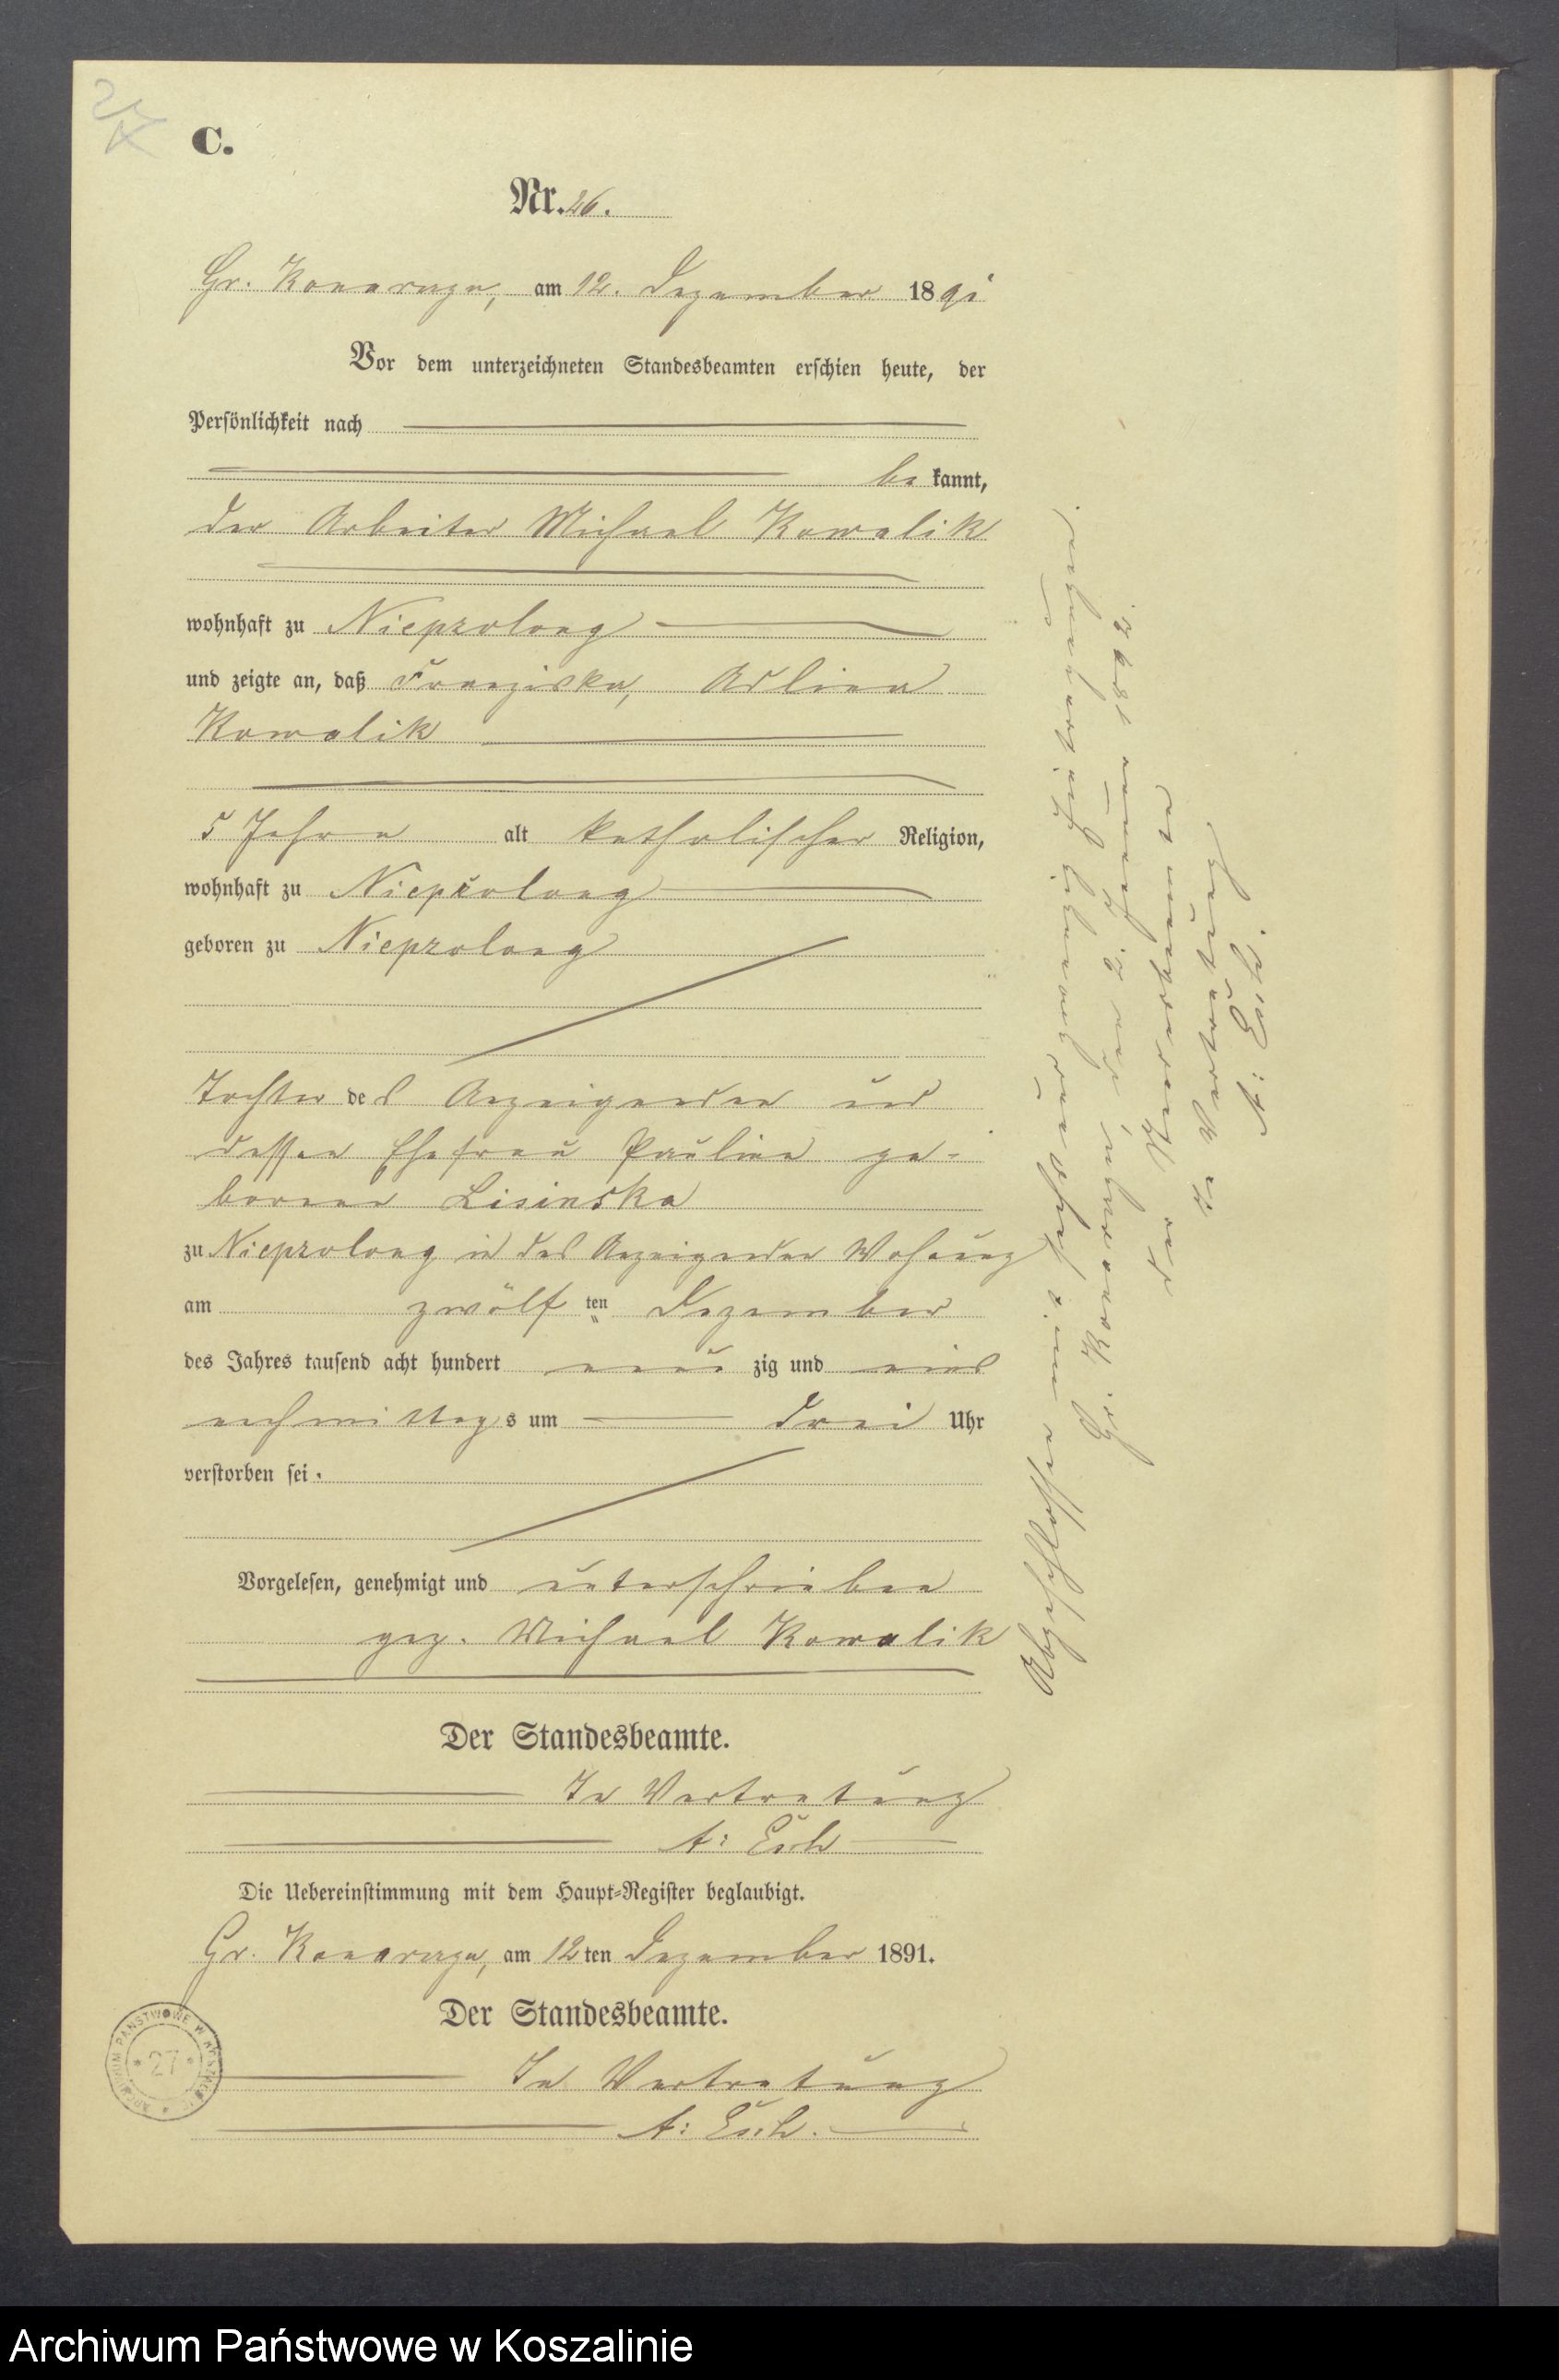 C.
Nr. 26.
Gr. Konarczyn, am 12. Dezember 1891
Vor dem unterzeichneten Standesbeamten erschien heute, der
Persönlichkeit nach
be kannt,
der Arbeiter Michael Kowalik
wohnhaft zu Niepszolong
und zeigte an, daß Franziska,
Kowalik
5 Jahre alt katholischer Religion,
wohnhaft zu Niepszolong
geboren zu Niepszolong
Tochter des Anzeigenden und
dessen Ehefrau Pauline ge-
borene Lisinska
zu Niepszolong in des Anzeigenden Wohnung
am zwölf ten Dezember
des Jahres tausend acht hundert neun zig und eins
nachmittags um drei Uhr
verstorben sei.
Vorgelesen, genehmigt und unterschrieben
gez. Michael Kowalik
Der Standesbeamte.
In Vertretung
A: Esch
Die Uebereinstimmung mit dem Haupt-Register beglaubigt.
Gr. Konarczyn, am 12ten Dezember 1891.
Der Standesbeamte.
In Vertretung
A: Esch.
Abgeschlossen mit sechsundzwanzig Eintragungen.
Gr. Konarczyn, den 2. Januar 1892.
Der Standesbeamte
In Vertretung
A: Esch.
ARCHIWUM PAŃSTWOWE W KOSZALINIE * 27 *
Archiwum Państwowe w Koszalinie